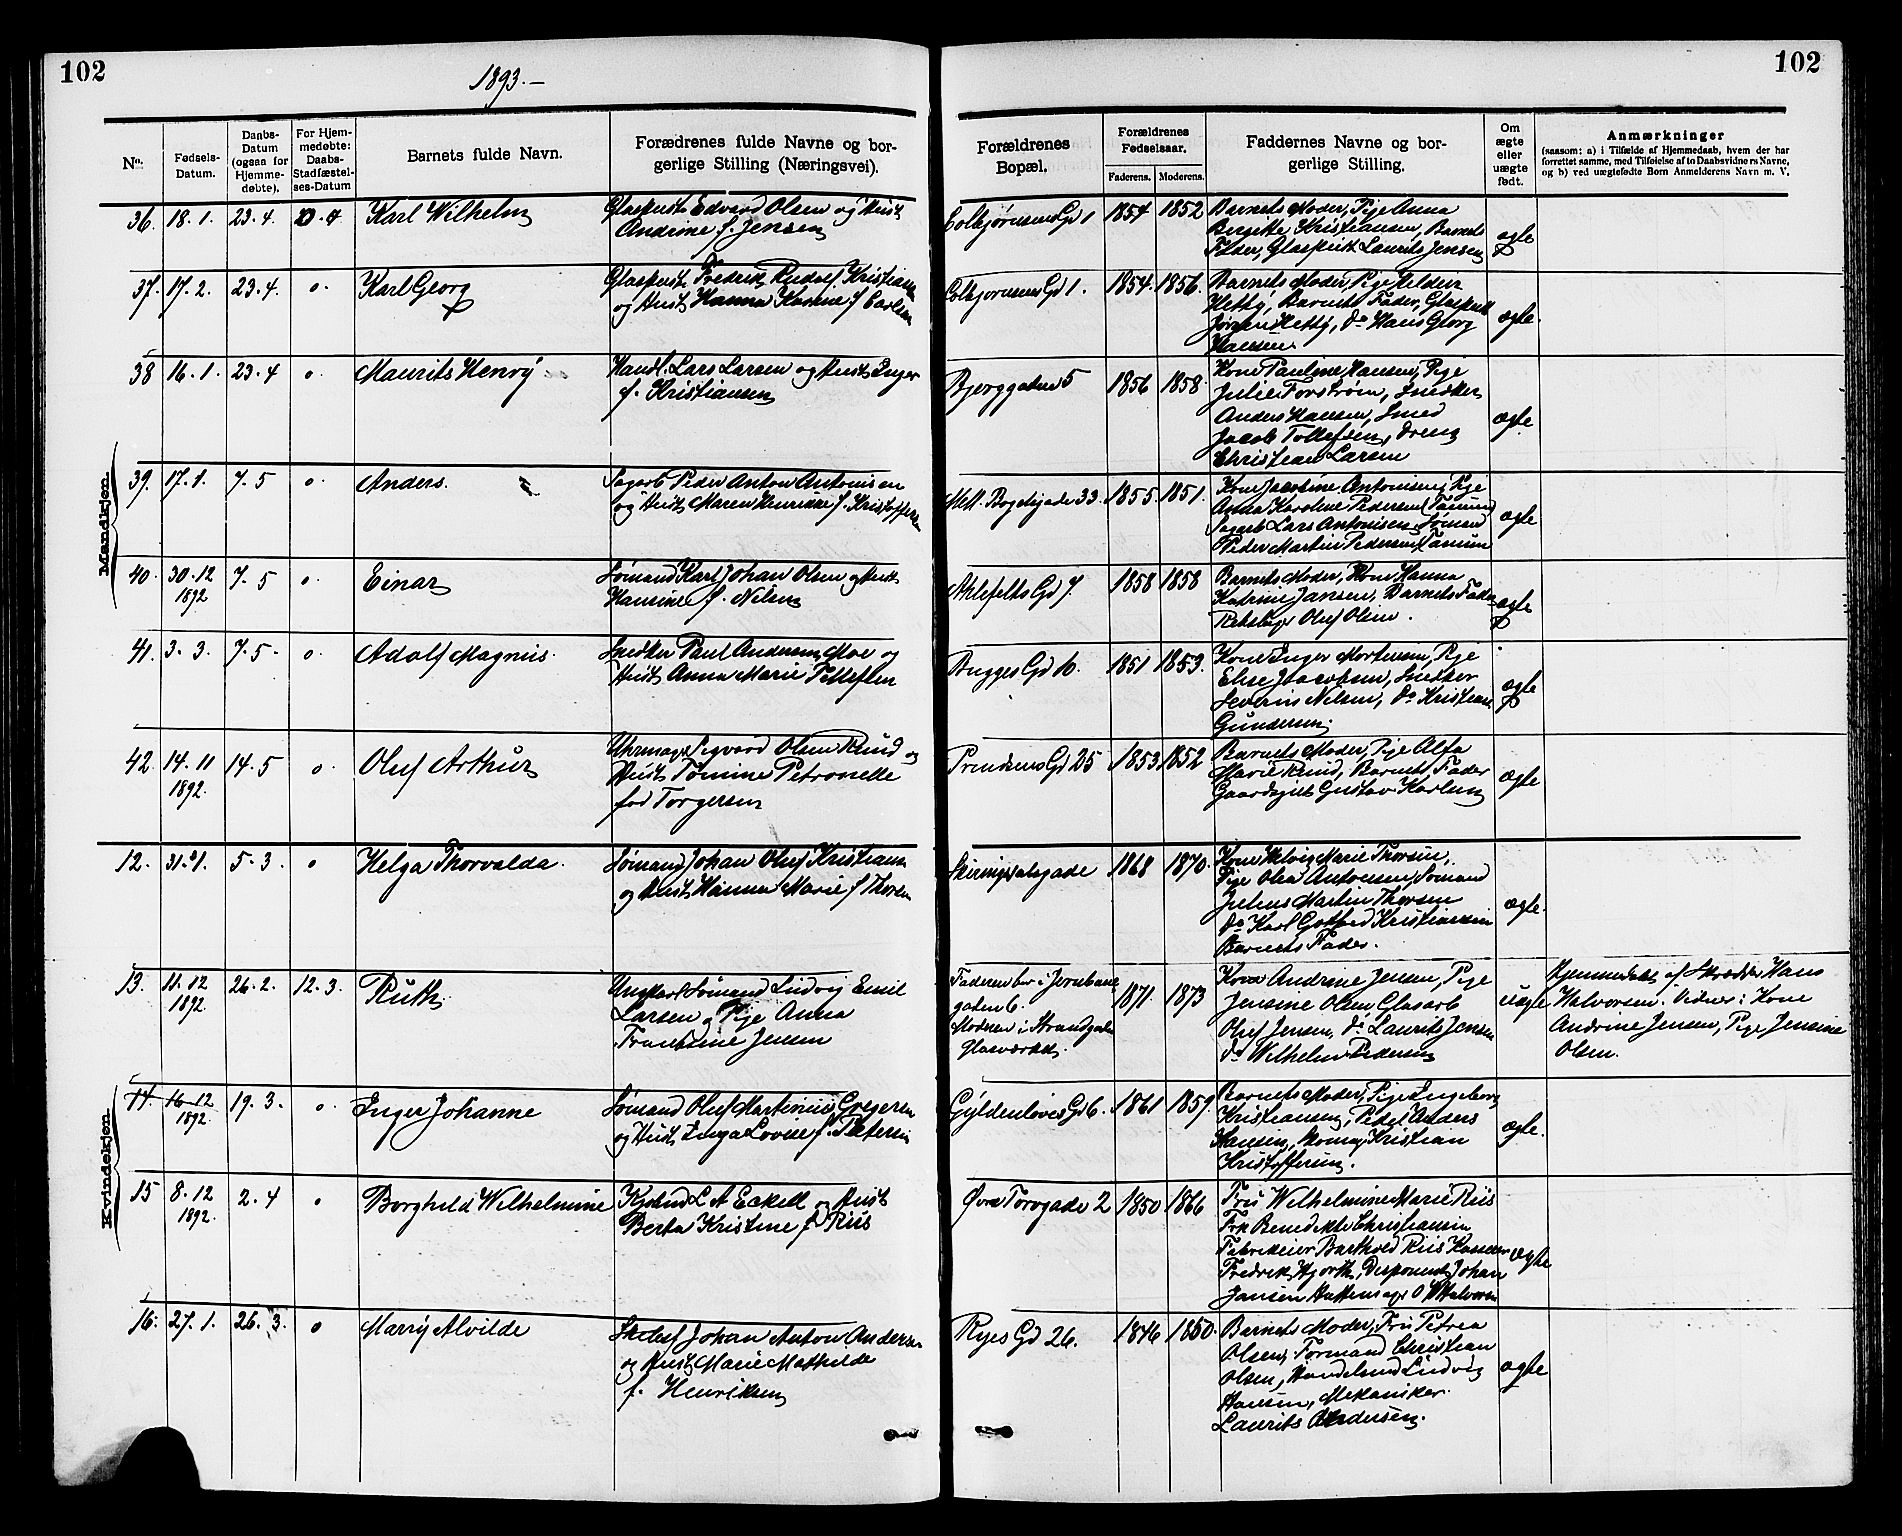 102
1893.-
102
No.
Fødsels-
Datum.
Daabs-
Datum
(ogsaa for
Hjemme-
døbte).
For Hjem-
medøbte:
Daabs-
Stadfæstel-
ses-Datum
Barnets fulde Navn.
Forædrenes fulde Navne og bor-
gerlige Stilling (Næringsvei).
Forældrenes
Bopæl.
Forældrenes
Fødselsaar.
Faderens. Moderens.
Faddernes Navne og bor-
gerlige Stilling.
Om
ægte
eller
uægte
født.
Anmærkninger
(saasom: a) i Tilfælde af Hjemmedaab, hvem der har
forrettet samme, med Tilføielse af to Daabsvidners Navne,
og b) ved uægtefødte Børn Anmelderens Navn m. V.
Mandkjøn.
36. 18.1. 23.4. Karl Wilhelm
Edvard Olsen og Hust
Andrine f. Jensen
Gd 1 1854 1852
Barnets Moder, Pige Anna
Birgitte Kristiansen, Barnets
Fader, Glaspust Laurits Jensen
ægte
37. 17.2. 23.4. o. Karl Georg
Glaspust Fredrik Rudolf Kristiansen
og Hust Hanna Karine f Carlsen
Gd 1. 1854. 1856.
Barnets Moder, Pige
Barnets Fader, Glaspust
Jørgen Do Hans Georg
Hansen.
ægte.
38 16.1. 23.4 o. Maurits Henry
Handl. Lars Larsen og Hust Inger
f. Kristiansen
Bjerggaden 5 1856 1858.
Kone Pauline Hansen, Pige
Julie Forstrøm, Snedker
Anders Hansen, Smed
Jacob Tollefsen, Dreng
Christian Larsen
ægte
39. 17.1. 7.5 o. Anders.
Sagarb Peder Anton Antonisen
og Hust Maren Henrikke f. Kristoffersen
33. 1855. 1851.
Kone Antonisen, Pige
Anna Karoline Pedersen (Tanum)
Sagarb Lars Antonisen, Sømand
Peder Martin Pedersen (Tanum
ægte
40. 30.12 7.5 o. Einar
1892
Sømand Karl Johan Olsen og Hust
Hansine f. Nilsen
Ahlefelts Gd 7. 1858 1858
Barnets Moder, Kone Hanna
Katrine Jansen, Barnets Fader
Rebslager Oluf Olsen.
ægte
41. 3.3. 7.5. o. Adolf Magnus.
Snedker Paul Andersen Moe og
Hust Anna Marie Tollefsen
Bugges Gd 10. 1851 1853.
Kone Inger Mortensen, Pige
Elise Jacobsen, Snedker
Severin Nilsen, Do Kristian
Gundersen.
ægte
42. 14.11 14.5 o. Oluf Arthur
1892.
Uhrmager Sigvard Olsen Ruud og
Hust Tomine Petronelle
fød Torgersen
Gd 25 1853. 1852
Barnets Moder, Pige Alfa
Marie Ruud, Barnets Fader
Gaardsgut Gustav Karlsen
ægte
Kvindekjøn.
12. 31.1. 5.3. o Helga Thorvalda.
Sømand Johan Oluf Kristiansen
og Hust Hanna Marie f Thorsen
Skiringssalsgade 1868 1870.
Kone Marie Thorsen,
Pige Olea Antonsen, Sømand
Julius Martin Thorsen
Do Karl Gotfred Kristiansen
Barnets Fader.
ægte.
13. 11.12 26.2. 12.3. Ruth.
1892.
Ungkarl Sømand Ludvig Emil
Larsen og Pige Anna
Frantsine Jensen
Faderen bor i Jernbane
gaden 6.
Moderen i Strandgaden
Glasværket.
1871. 1873
Kone Andrine Jensen, Pige
Jensine Olsen, Glasarb
Oluf Jensen, Do Laurits Jensen
Do Wilhelm Pedersen
uægte
Hjemmedøbt af Skrædder Hans
Halvorsen. Vidner: Kone
Andrine Jensen, Pige Jensine
Olsen.
14. 16.12 19.3. o. Inger Johanne
1892.
Sømand Oluf Martinius Gregersen
og Hust Inga Lovise f. Petersen
Gyldenløves Gd 6. 1861 1859.
Barnets Moder, Pige Ingeborg
Kristiansen, Pedel Anders
Hansen, Skomag Kristian
Kristoffersen.
ægte.
15 8.12 2.4 o Borghild Wilhelmine
1892.
Kjøbmd L A Eckell og Hust
Berta Kristine f Riis
Øvre Torvgade 2 1850 1866
Fru Wilhelmine Marie Riis
Frk Benedikte Christiansen
Fabrikeier Barthold Riis Kasserer
Fredrik Hjorth, Disponent Johan
Jansen Hattemager O Halvorsen
ægte
16. 27.1. 26.3. o Marry Alvilde
Johan Anton Andersen
og Hust Marie Mathilde
f. Henriksen
Ryes Gd 26. 1846 1850.
Barnets Moder, Fru Petrea
Olsen, Formand Christian
Olsen, Handelsmd Ludvig
Hansen, Mekaniker
Laurits Andersen.
ægte